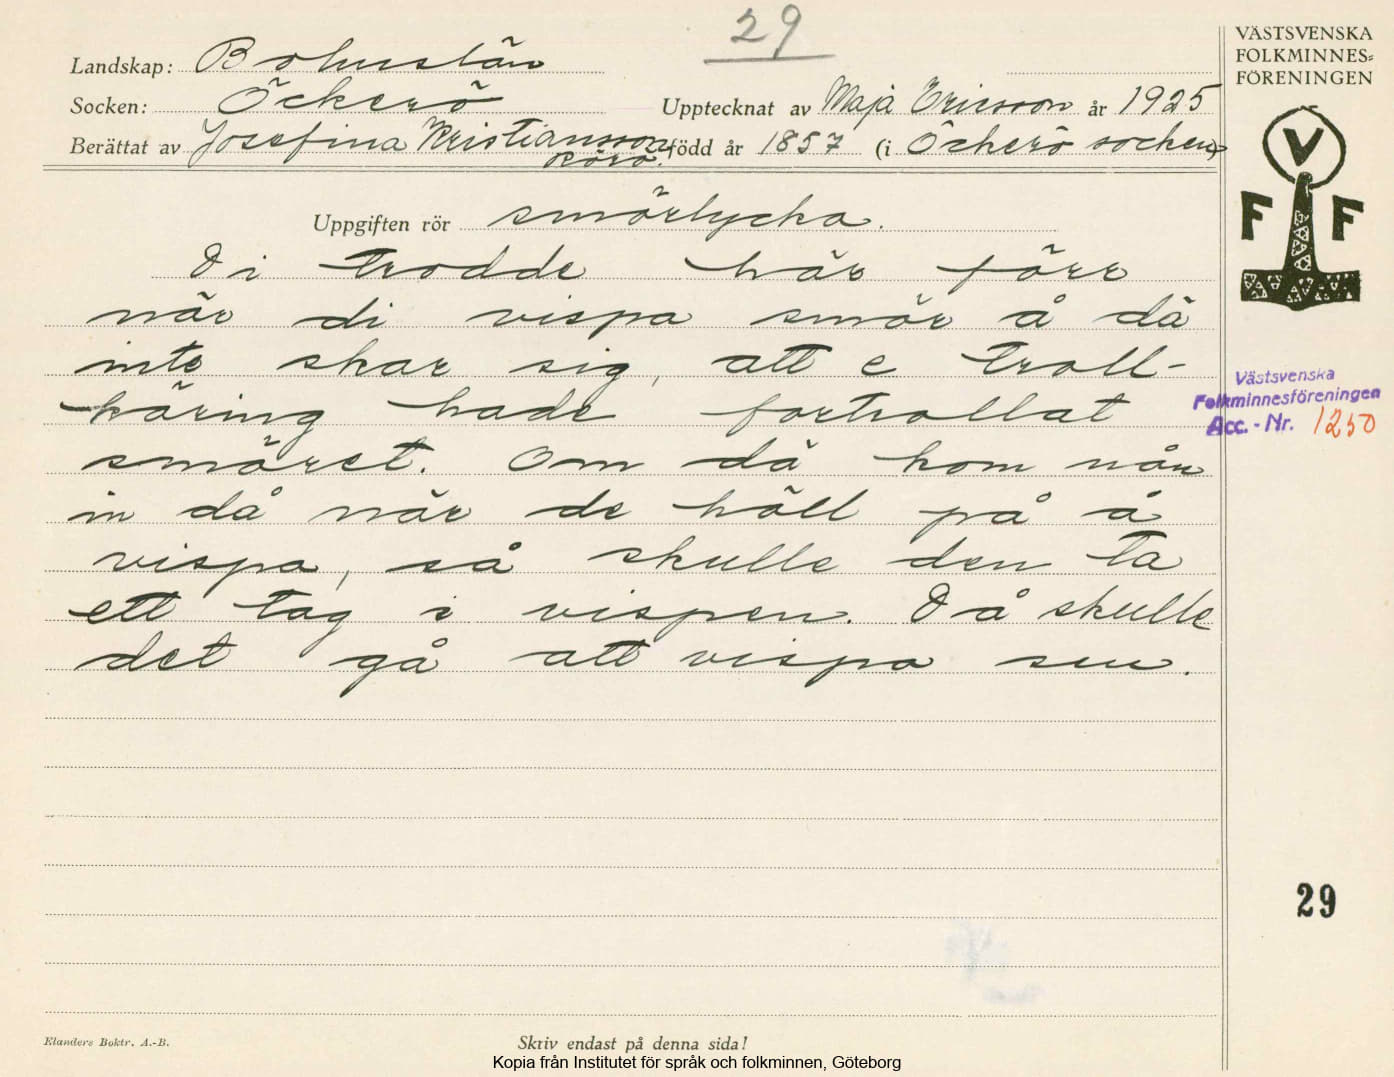 29
VÄSTSVENSKA
FOLKMINNES=
FÖRENINGEN
Landskap: Bohuslän
Socken: Öckerö Upptecknat av Maja Ericsson år 1925
Berättat av Josefina Kristiansson född år 1857 (i Öckerö socken)
Rörö.
V
F F
Uppgiften rör smörlycka.
Di trodde här förr
när di vispa smör å dä
inte skar sig, att e troll-
käring hade fortrollat
smöret. Om dä kom nån
in då när de höll på å
vispa, så skulle den ta
ett tag i vispen. Då skulle
det gå att vispa sen.
Västsvenska
Folkminnesföreningen
Acc. - Nr. 1250
29
Elanders Boktr. A.-B.
Skriv endast på denna sida!
Kopia från Institutet för språk och folkminnen, Göteborg